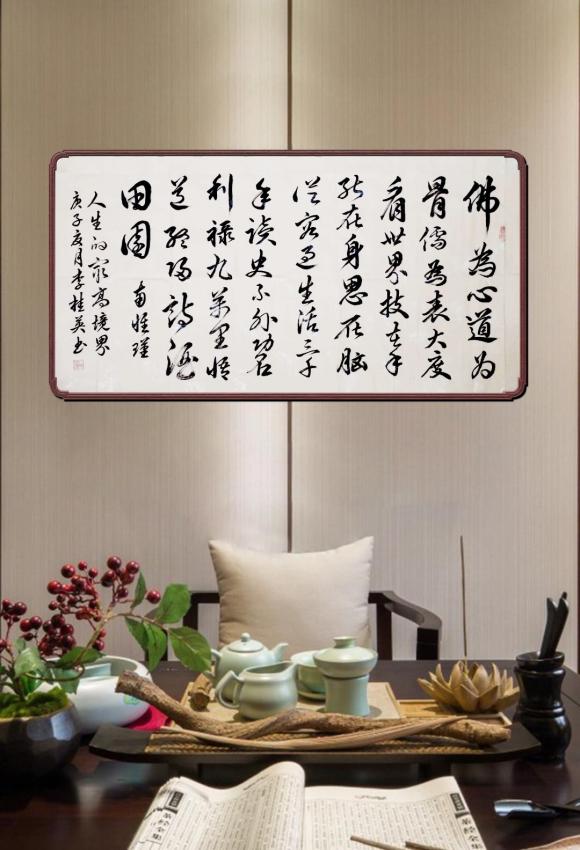 佛為心道为
骨儒為表大度
看世界技在手
能在身思在脑
從容过生活三千
年读史不外功名
利禄九萬里悟
道终归詩酒
田園 南怀瑾
人生的最高境界
庚子夏月李桂英书
茶经全集
茶经全集